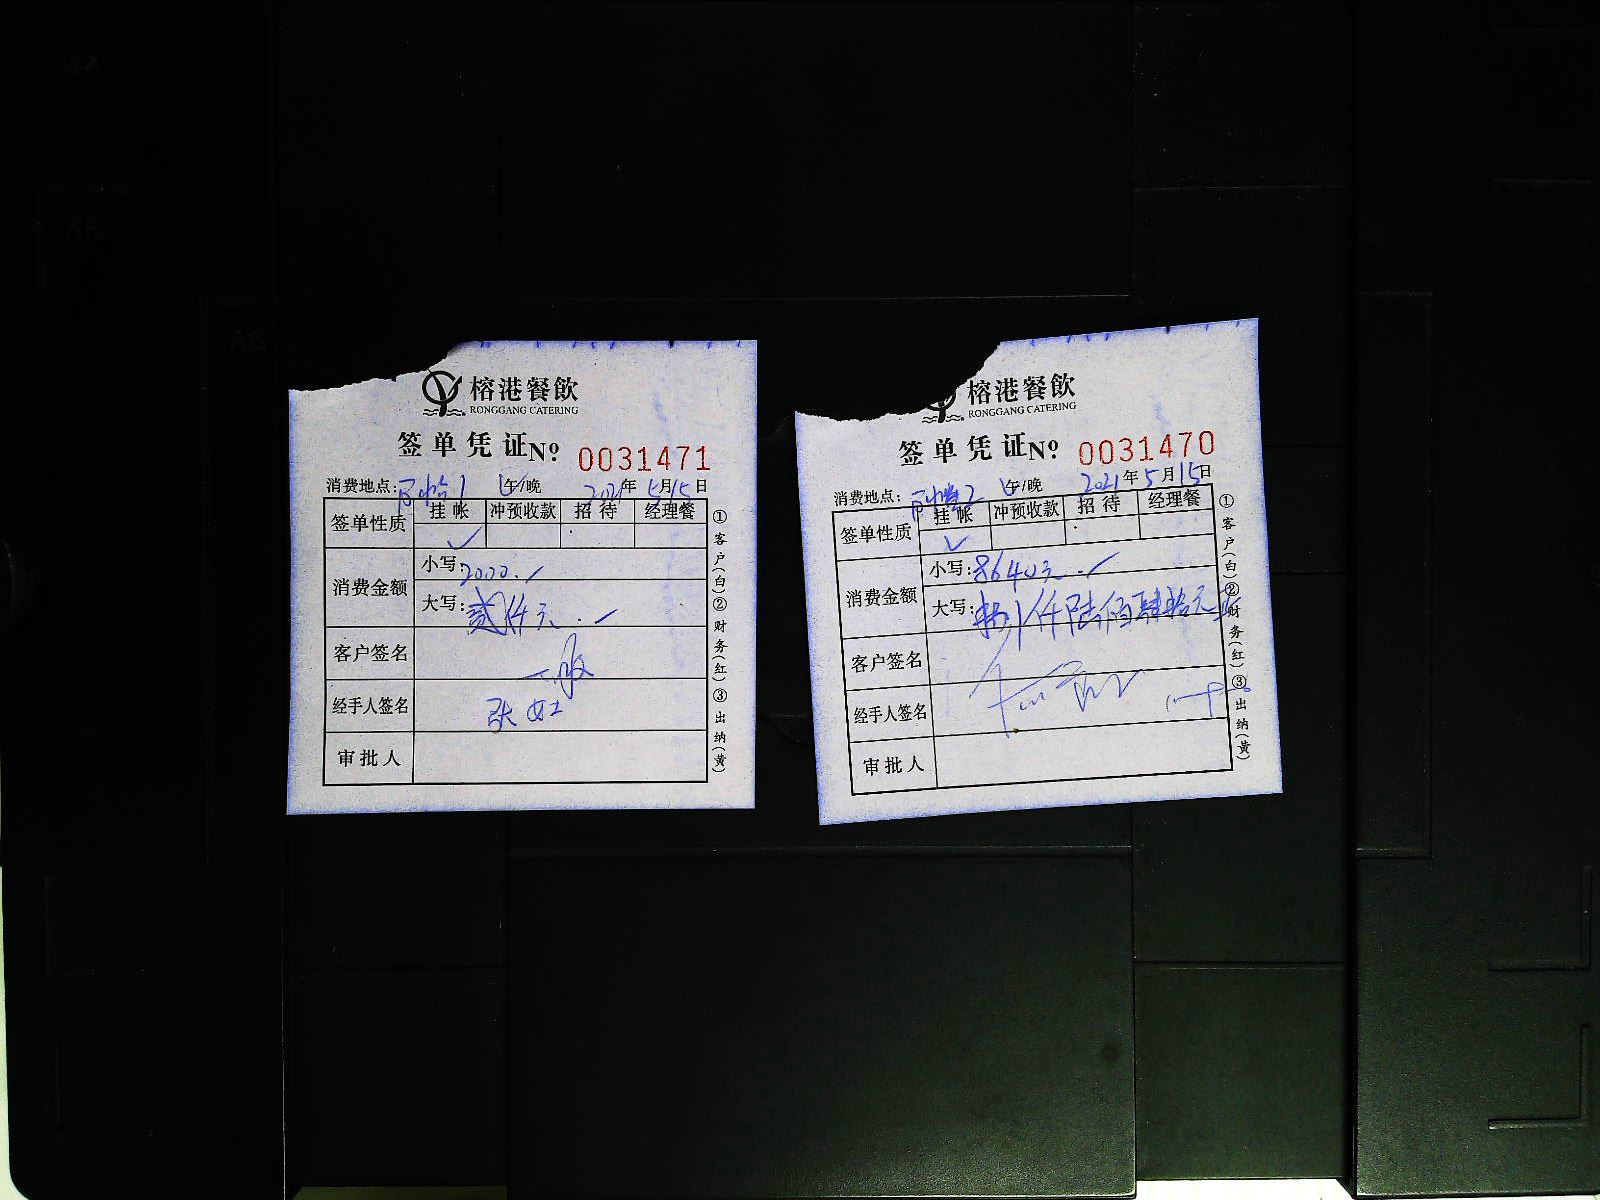 榕港餐飲
RONGGANG CATERING
签单凭证 No 0031471
消费地点: 午/晚 2021年5月15日
签单性质 挂帐 冲预收款 招待 经理餐
✓
消费金额 小写: 2000.
大写: 贰仟元.
客户签名
经手人签名 张
审批人
①客户(白)②财务(红)③出纳(黄)
榕港餐飲
RONGGANG CATERING
签单凭证 No 0031470
消费地点: 午/晚 2021年5月15日
签单性质 挂帐 冲预收款 招待 经理餐
✓
消费金额 小写: 8640元.
大写: 捌仟陆佰肆拾元
客户签名
经手人签名
审批人
①客户(白)②财务(红)③出纳(黄)